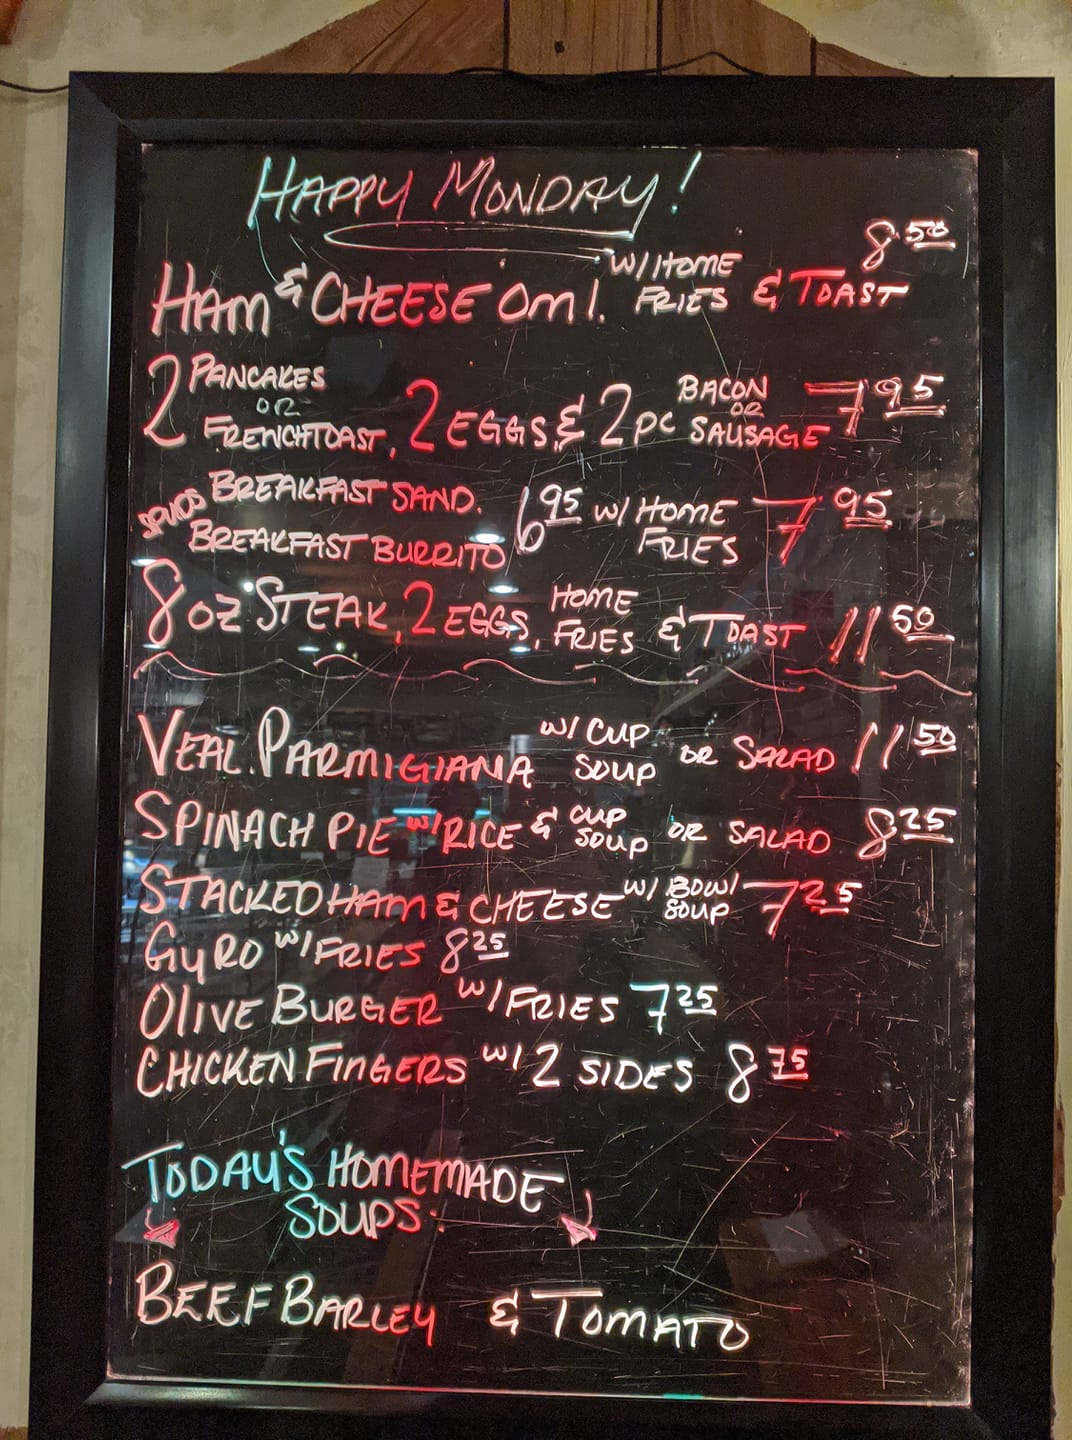 HAPPY MONDAY!
HAM & CHEESE OML. W/ HOME FRIES & TOAST 8.50
2 PANCAKES OR FRENCHTOAST, 2 EGGS, & 2 PC BACON OR SAUSAGE 7.95
BREAKFAST SAND.
BREAKFAST BURRITO 6.95 W/ HOME FRIES 7.95
8 OZ STEAK, 2 EGGS, HOME FRIES & TOAST 11.50
VEAL PARMIGIANA W/ CUP SOUP OR SALAD 11.50
SPINACH PIE W/ RICE & CUP SOUP OR SALAD 8.25
STACKED HAM & CHEESE W/ BOWL SOUP 7.25
GYRO W/ FRIES 8.25
OLIVE BURGER W/ FRIES 7.25
CHICKEN FINGERS W/ 2 SIDES 8.75
TODAY'S HOMEMADE
SOUPS:
BEEF BARLEY & TOMATO